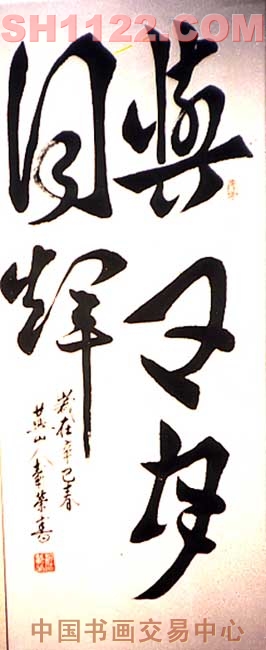 SH1122.COM
與日月
同輝
歲在辛巳春
燕山人
中国书画交易中心